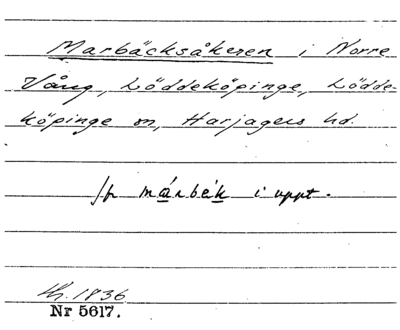 Marbäcksåkeren i Norre
Vång, Löddeköpinge, Lödde-
köpinge sn, Harjagers hd.
/fr márbék i uppt.
Lh. 1836
Nr 5617.